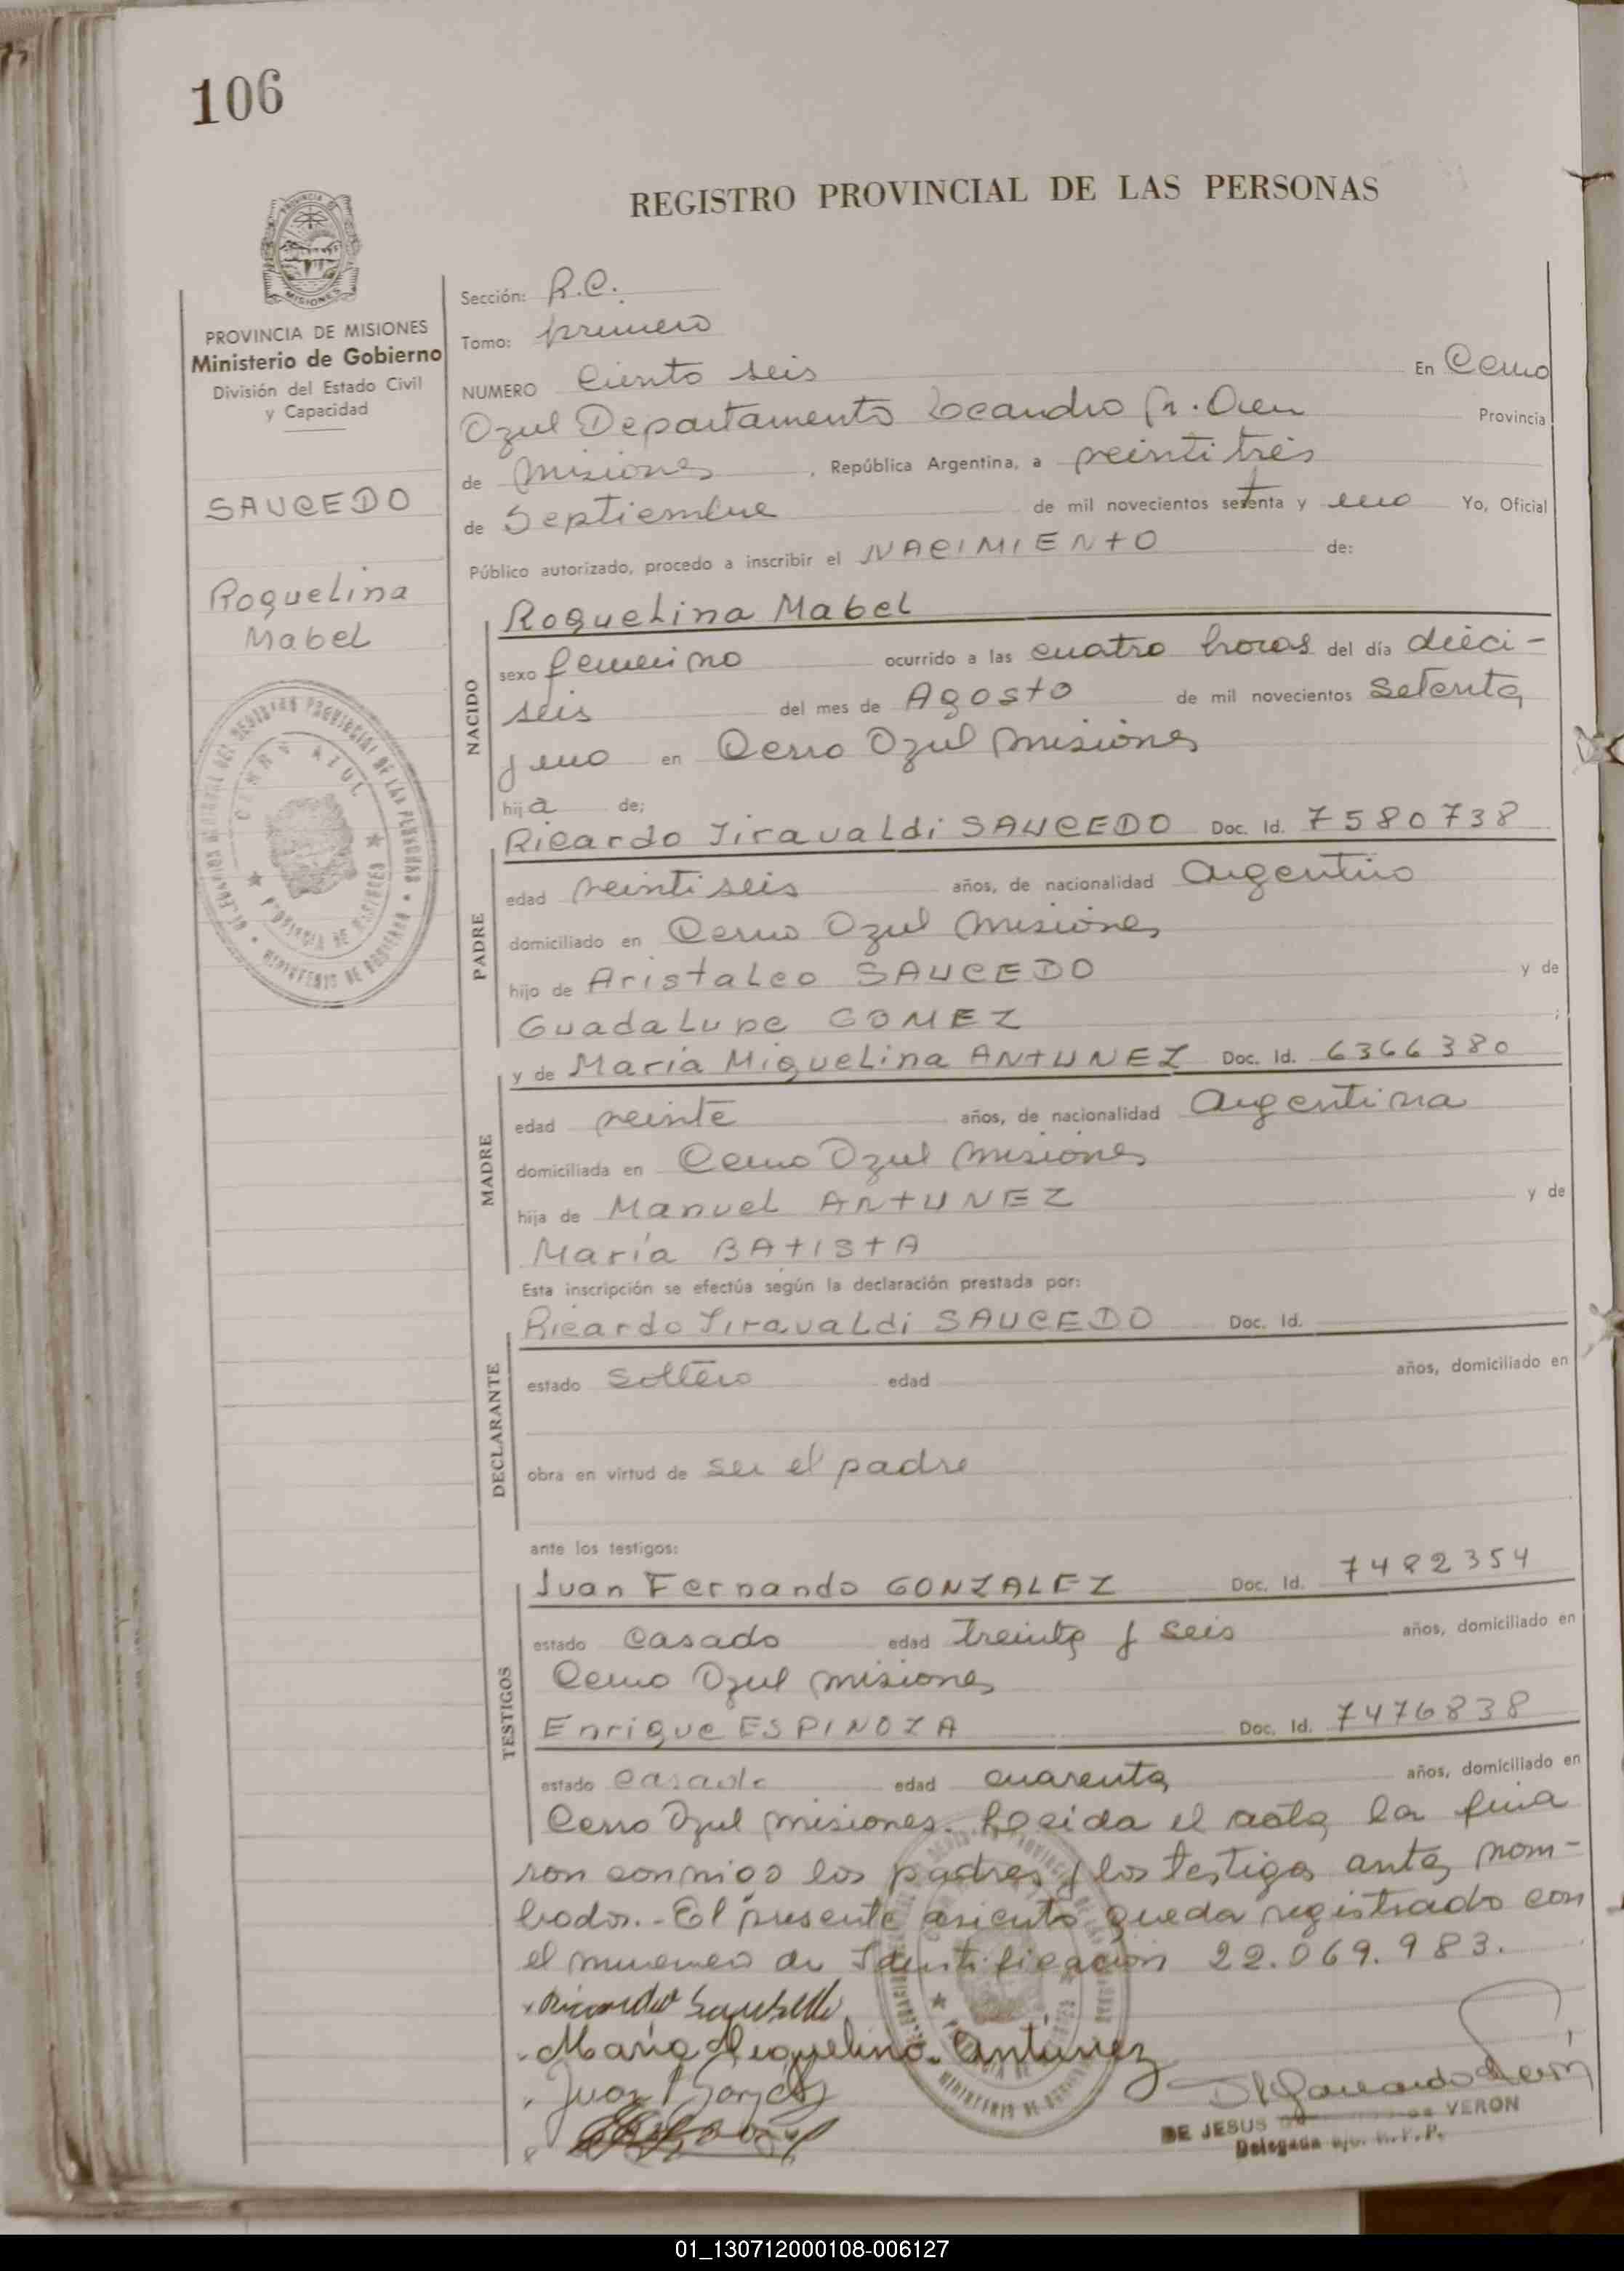 106
REGISTRO PROVINCIAL DE LAS PERSONAS
PROVINCIA DE MISIONES
Ministerio de Gobierno
División del Estado Civil
y Capacidad
SAUCEDO
Roquelina
Mabel
Sección: R.C.
Tomo: primero
NUMERO Ciento seis En Cerro
Azul Departamento Leandro N. Alem Provincia
de Misiones , República Argentina, a veintitrés
de Septiembre de mil novecientos setenta y uno Yo, Oficial
Público autorizado, procedo a inscribir el NACIMIENTO de:
NACIDO
Roquelina Mabel
sexo femenino ocurrido a las cuatro horas del día dieci-
seis del mes de Agosto de mil novecientos setenta
y uno en Cerro Azul Misiones
hija de;
PADRE
Ricardo Jiravaldi SAUCEDO Doc. Id. 7580738
edad veintiseis años, de nacionalidad Argentino
domiciliado en Cerro Azul Misiones
hijo de Aristaleo SAUCEDO y de
Guadalupe GOMEZ ;
MADRE
y de María Miguelina ANTUNEZ Doc. Id. 6366380
edad veinte años, de nacionalidad Argentina
domiciliada en Cerro Azul Misiones
hija de Manuel ANTUNEZ y de
María BATISTA
Esta inscripción se efectúa según la declaración prestada por:
DECLARANTE
Ricardo Jiravaldi SAUCEDO Doc. Id.
estado soltero edad años, domiciliado en
obra en virtud de ser el padre
ante los testigos:
TESTIGOS
Juan Fernando GONZALEZ Doc. Id. 7482354
estado casado edad treinta y seis años, domiciliado en
Cerro Azul Misiones
Enrique ESPINOZA Doc. Id. 7476838
estado casado edad cuarenta años, domiciliado en
Cerro Azul Misiones. Leida el acta la firma
ron conmigo los padres y los testigos antes nom-
brados.- El presente asiento queda registrado con
el numero de Identificación 22.069.983.
María Miguelina Antúnez
DE JESUS VERON
Delegada
01_130712000108-006127